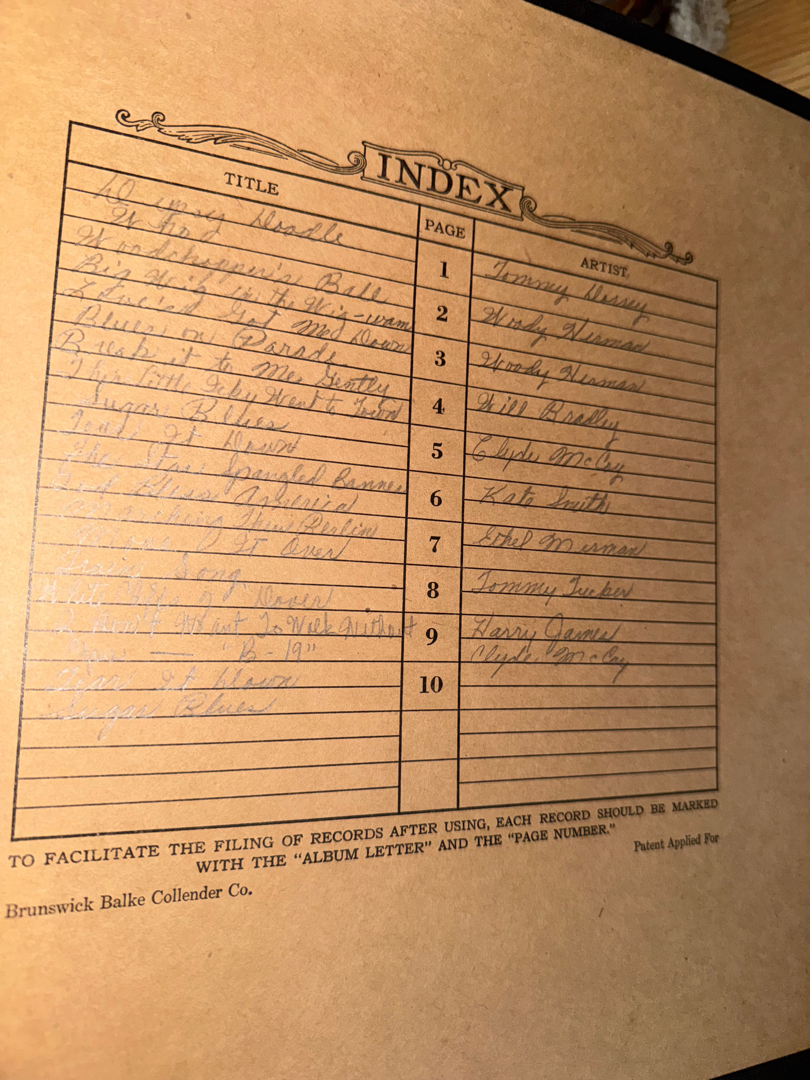 INDEX
TITLE PAGE ARTIST
Doodle
Who
1 Tommy Dorsey
Woodchopper's Ball
Big Wig in the Wig-wam
2 Woody Herman
Love's Got Me Down
Blues on Parade
3 Woody Herman
Break it to Me Gently
This little Went to Town
4 Will Bradley
Sugar Blues
It Down
5 Clyde McCoy
The Star Spangled Banner
God Bless America
6 Kate Smith
Marching Thru Berlin
Move It Over
7 Ethel Merman
Song
White Cliffs of Dover
8 Tommy Tucker
I don't Want To Walk Without
You — "B-19"
9 Harry James
Tear It Down
Sugar Blues
Clyde McCoy
10
TO FACILITATE THE FILING OF RECORDS AFTER USING, EACH RECORD SHOULD BE MARKED
WITH THE "ALBUM LETTER" AND THE "PAGE NUMBER."
Patent Applied For
Brunswick Balke Collender Co.